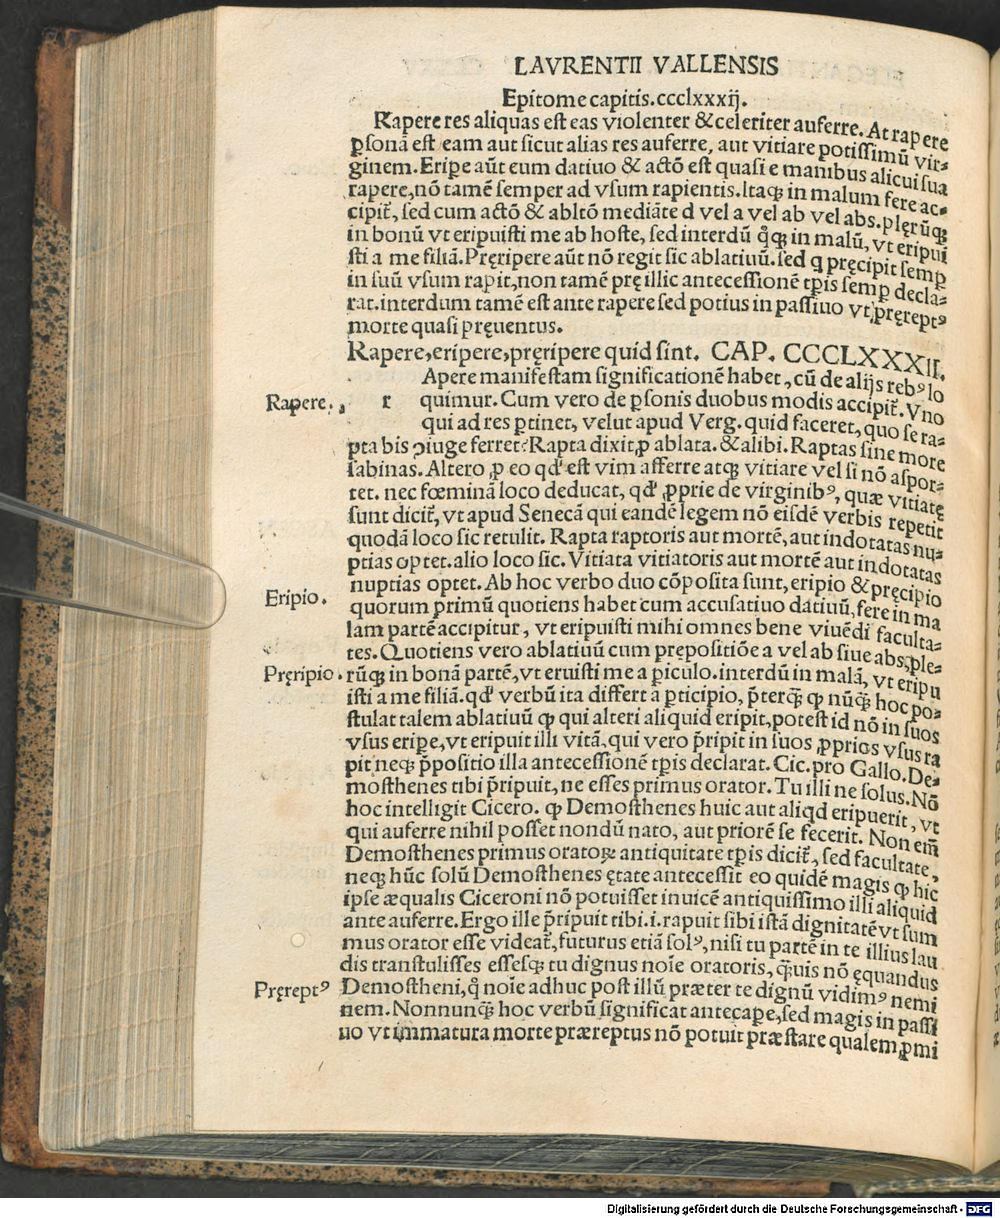 LAVRENTII VALLENSIS
Epitome capitis.ccclxxxij.
Rapere res aliquas eſt eas violenter & celeriter auferre. At rapere
ꝑſonā eſt eam aut ſicut alias res auferre, aut vitiare potiſſimū vir-
ginem. Eripe aūt eum datiuo & actō eſt quaſi e manibus alicui ſua
rapere, nō tamē ſemper ad vſum rapientis. Itaqꝫ in malum fere ac-
cipit̄, ſed cum actō & abltō mediāte d vel a vel ab vel abs. plęrūqꝫ
in bonū vt eripuiſti me ab hoſte, ſed interdū q̊qꝫ in malū, vt eripui
ſti a me filiā. Pręripere aūt nō regit ſic ablatiuū. ſed q pręcipit ſemꝑ
in ſuū vſum rapit, non tamē prę illic anteceſſionē tꝑis ſemꝑ decla-
rat. interdum tamē eſt ante rapere ſed potius in paſſiuo vt, pręreptꝰ
morte quaſi pręuentus.
Rapere, eripere, pręripere quid ſint. CAP. CCCLXXXII.
Apere manifeſtam ſignificationē habet, cū de alijs rebꝰ lo
Rapere. r quimur. Cum vero de ꝑſonis duobus modis accipit̄. Vno
qui ad res ꝑtinet, velut apud Verg. quid faceret, quo ſe ra-
pta bis ꝯiuge ferret: Rapta dixit ꝓ ablata. & alibi. Raptas ſine more
ſabinas. Altero ꝓ eo qd' eſt vim afferre atqꝫ vitiare vel ſi nō aſpor-
tet. nec fœminā loco deducat, qd' ꝓprie de virginibꝰ, quæ vitiatę
ſunt dicit̄, vt apud Senecā qui eandē legem nō eiſdē verbis repetit
quodā loco ſic retulit. Rapta raptoris aut mortē, aut indotatas nu-
ptias optet. alio loco ſic. Vitiata vitiatoris aut mortē aut indotatas
nuptias optet. Ab hoc verbo duo cōpoſita ſunt, eripio & pręcipio
Eripio. quorum primū quotiens habet cum accuſatiuo datiuū, fere in ma
lam partē accipitur, vt eripuiſti mihi omnes bene viuēdi faculta-
tes. Quotiens vero ablatiuū cum prępoſitiōe a vel ab ſiue abs, ple-
Pręripio. rūqꝫ in bonā partē, vt eruiſti me a ꝑiculo. interdū in malā, vt eripu
iſti a me filiā. qd' verbū ita differt a ꝑticipio, p̄terq̄ꝫ ꝙ nūq̄ꝫ hoc po-
ſtulat talem ablatiuū ꝙ qui alteri aliquid eripit, poteſt id nō in ſuos
vſus eripe, vt eripuit illi vitā, qui vero p̄ripit in ſuos ꝓprios vſus ra
pit neqꝫ p̄poſitio illa anteceſſionē tꝑis declarat. Cic. pro Gallo. De-
moſthenes tibi p̄ripuit, ne eſſes primus orator. Tu illi ne ſolus. Nō
hoc intelligit Cicero. ꝙ Demoſthenes huic aut aliqd eripuerit, vt
qui auferre nihil poſſet nondū nato, aut priorē ſe fecerit. Non em̄
Demoſthenes primus oratoꝝ antiquitate tꝑis dicit̄, ſed facultate,
neqꝫ hūc ſolū Demoſthenes ętate anteceſſit eo quidē magis ꝙ hic
ipſe æqualis Ciceroni nō potuiſſet inuicē antiquiſſimo illi aliquid
ante auferre. Ergo ille p̄ripuit tibi. i. rapuit ſibi iſtā dignitatē vt ſum
mus orator eſſe videat̄, futurus etiā ſolꝰ, niſi tu partē in te illius lau
dis tranſtuliſſes eſſeſqꝫ tu dignus noīe oratoris, q̄uis nō ęquandus
Pręreptꝰ Demoſtheni, q̊ noīe adhuc poſt illū præter te dignū vidimꝰ nemi
nem. Nonnunq̄ꝫ hoc verbū ſignificat antecaꝑe, ſed magis in paſſi
uo vt immatura morte præreptus nō potuit præſtare qualem ꝓmi
Digitalisierung gefördert durch die Deutsche Forschungsgemeinschaft - DFG